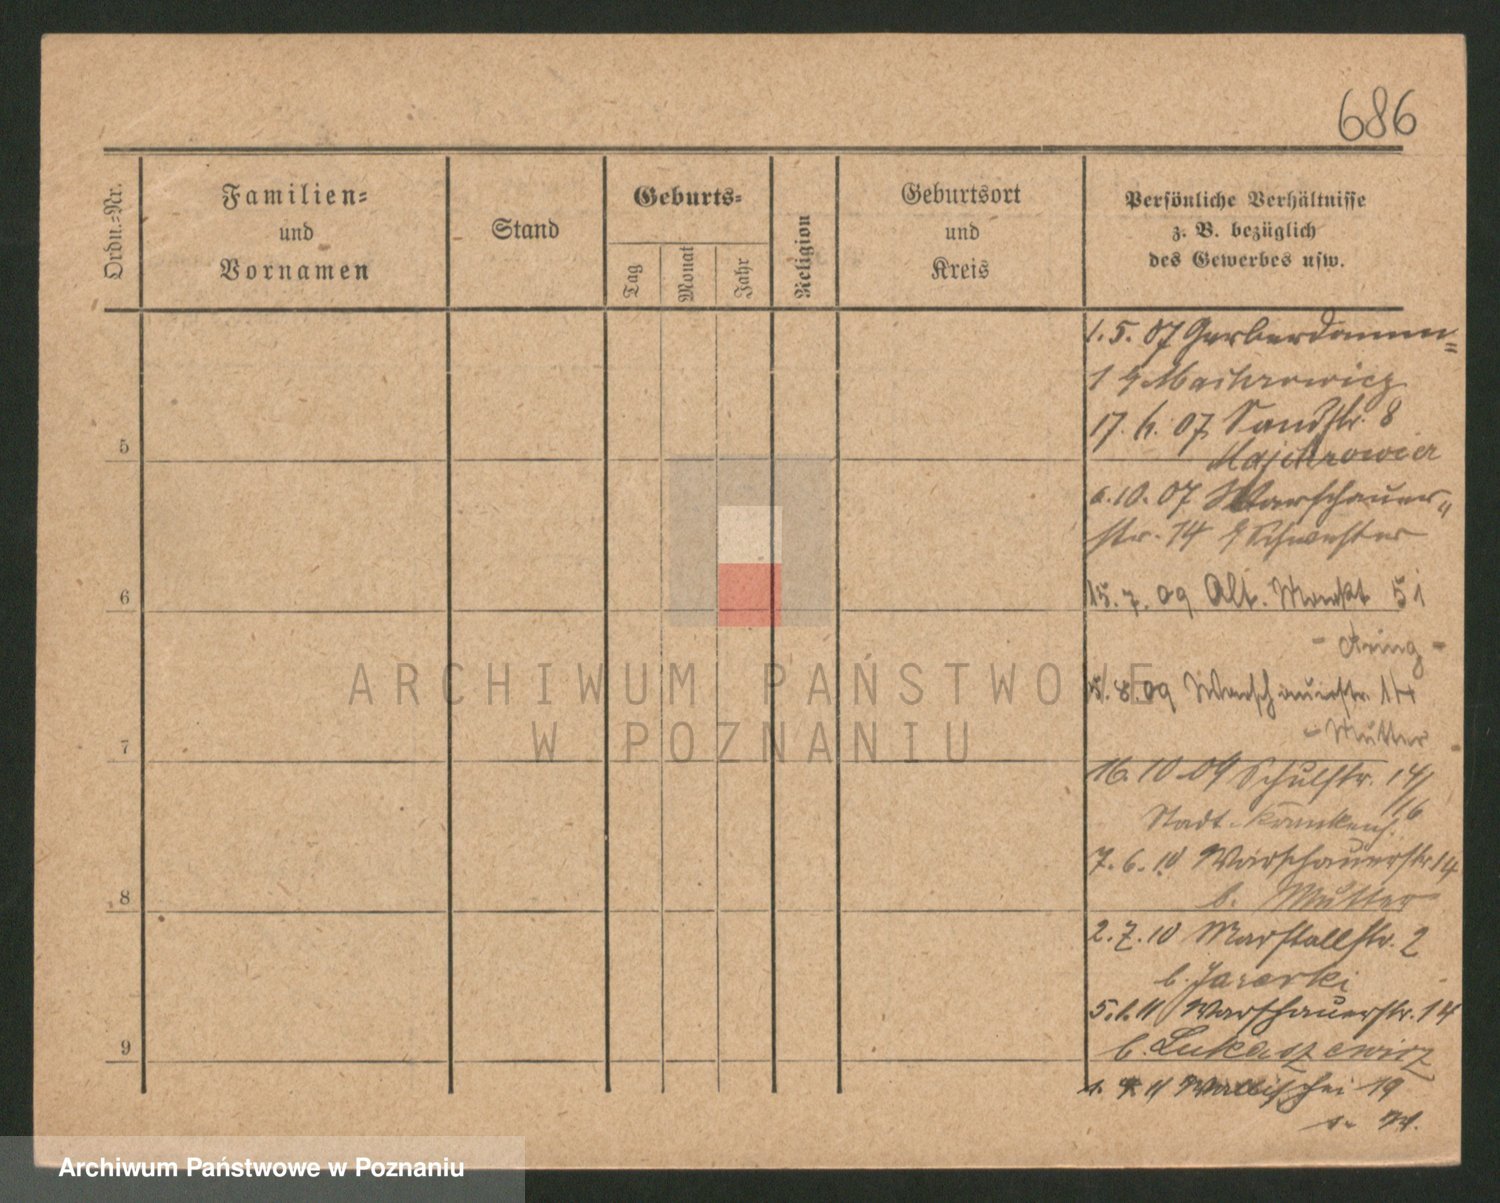 686
Ordn.-Nr.
Familien-
und
Vornamen
Stand
Geburts-
Tag
Monat
Jahr
Religion
Geburtsort
und
Kreis
Persönliche Verhältnisse
z. B. bezüglich
des Gewerbes usw.
1. 5. 07 Gerberdamm=
1 Majchrowicz
17. 07 Sandstr. 8
5
Majchrowicz
10. 07 Warschauer
str. 14 Schwester
15. 7. 09 Alt. Markt 51
6
- Kring -
8. 09 Warschauerstr. 14
7
- Mutter
16. 10 09 Schulstr. 14/
/16
Stadt. Krankenh.
7. 6. 10 Warschauerstr 14
8
b. Mutter
2. 7. 10 Marstallstr. 2
b.
5. 1. 11 Warschauerstr. 14
9
b. Lukaszewicz
1. 4 11 Wallischei 19
ARCHIWUM PAŃSTWOWE
W POZNANIU
Archiwum Państwowe w Poznaniu